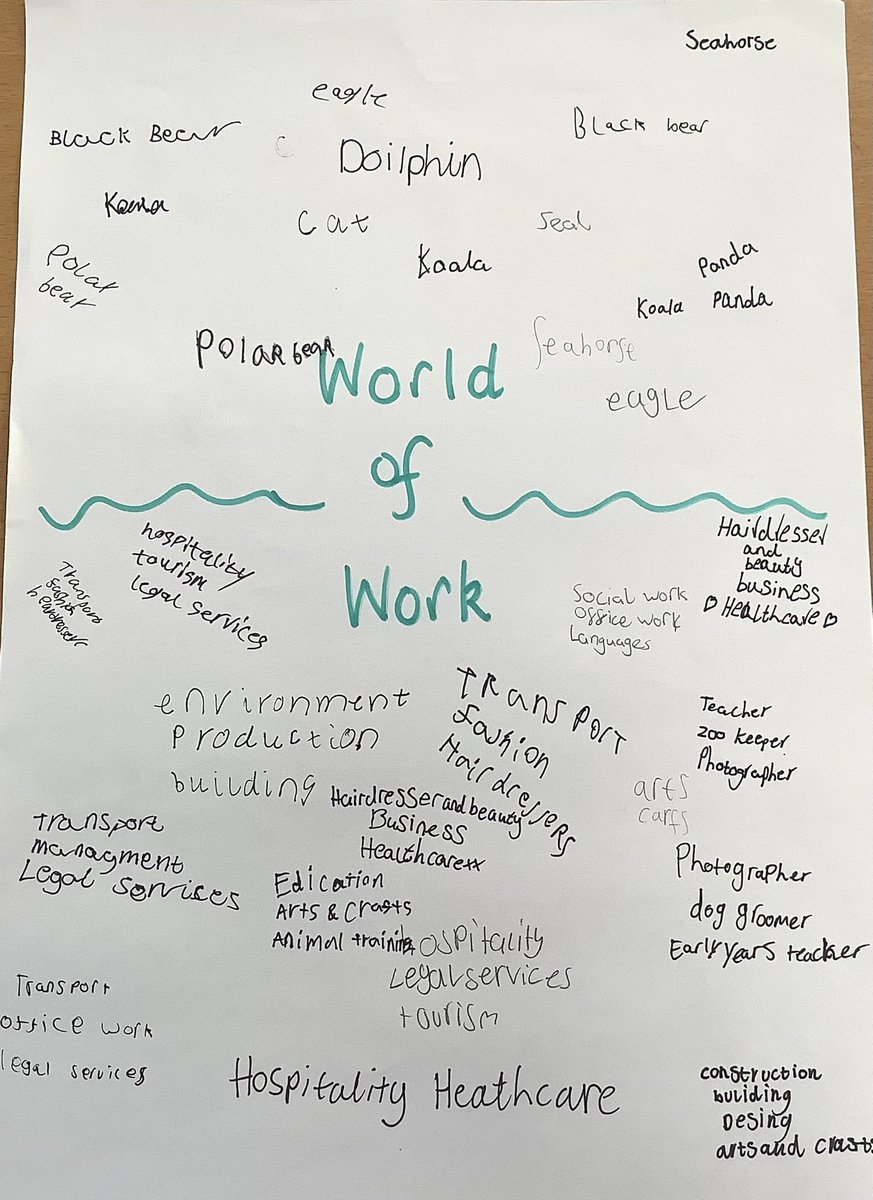 Seahorse
eagle
Black Bear
Black bear
C
Doilphin
Koala
Cat
Seal
Koala
Panda
Polar
bear
Koala Panda
Polar bear
Seahorse
World
eagle
of
Work
hospitality
tourism
legal services
Transport
fashion
hairdressers
Hairdresser
and
beauty
business
Healthcare
Social work
office work
Languages
environment
Production
building
Transport
fashion
Hairdressers
Teacher
zoo keeper
Photographer
arts
carfs
Hairdresser and beauty
Business
Healthcarexx
Transport
managment
Legal services
Edication
Arts & crafts
Animal training
Photographer
dog groomer
Early years teacher
ospitality
Legal services
tourism
Transport
office work
legal services
Hospitality Heathcare
construction
buliding
Desing
arts and crafts